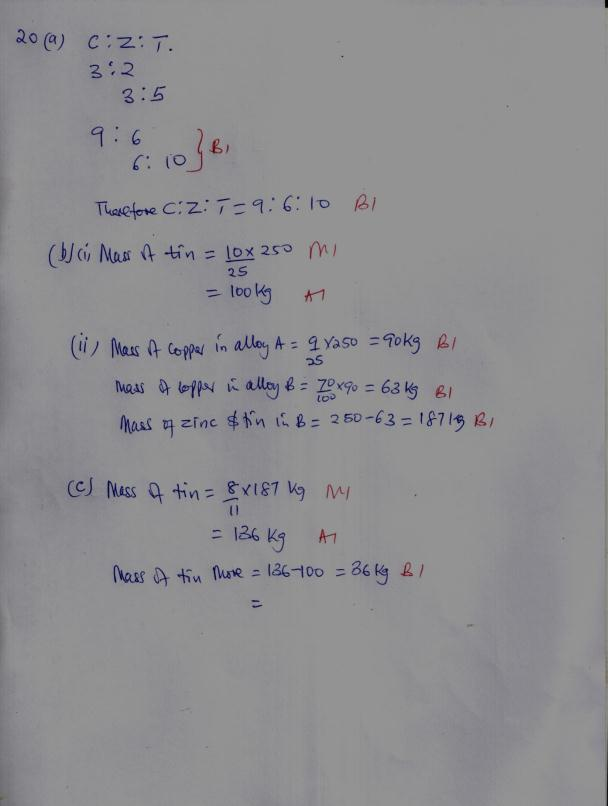 20 (a) C : Z : T.
3 : 2
3 : 5
9 : 6
6 : 10 } B1
Therefore C : Z : T = 9 : 6 : 10 B1
(b) (i) Mass of tin = 10/25 × 250 M1
= 100 kg A1
(ii) Mass of copper in alloy A = 9/25 × 250 = 90 kg B1
Mass of copper in alloy B = 70/100 × 90 = 63 kg B1
Mass of zinc & tin in B = 250 - 63 = 187 kg B1
(c) Mass of tin = 8/11 × 187 kg M1
= 136 kg A1
Mass of tin more = 136 - 100 = 36 kg B1
=